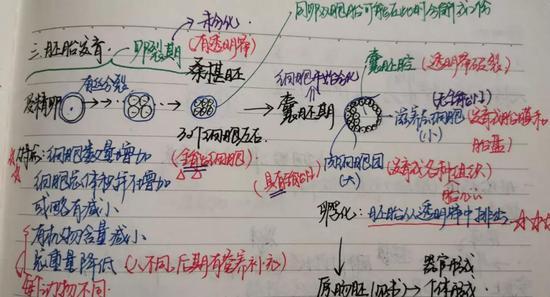 同卵双胞胎可能在此时分割成2份
未分化
三.胚胎发育 卵裂期 (有透明带)
囊胚腔 (透明带破裂)
桑椹胚
细胞开始分化
有丝分裂
受精卵
囊胚期
滋养层细胞
(小)
(发育成胎膜和胎盘)
32个细胞左右
(全能细胞)
内细胞团
(大)
(发育成各种组织)
特点:细胞数量增加
细胞总体积不增加
或略有减小
孵化:胚胎从透明带中排出
有机物含量减小
总重量降低 (人不同,后期有营养补充)
与动物不同
原肠胚
器官形成
个体形成